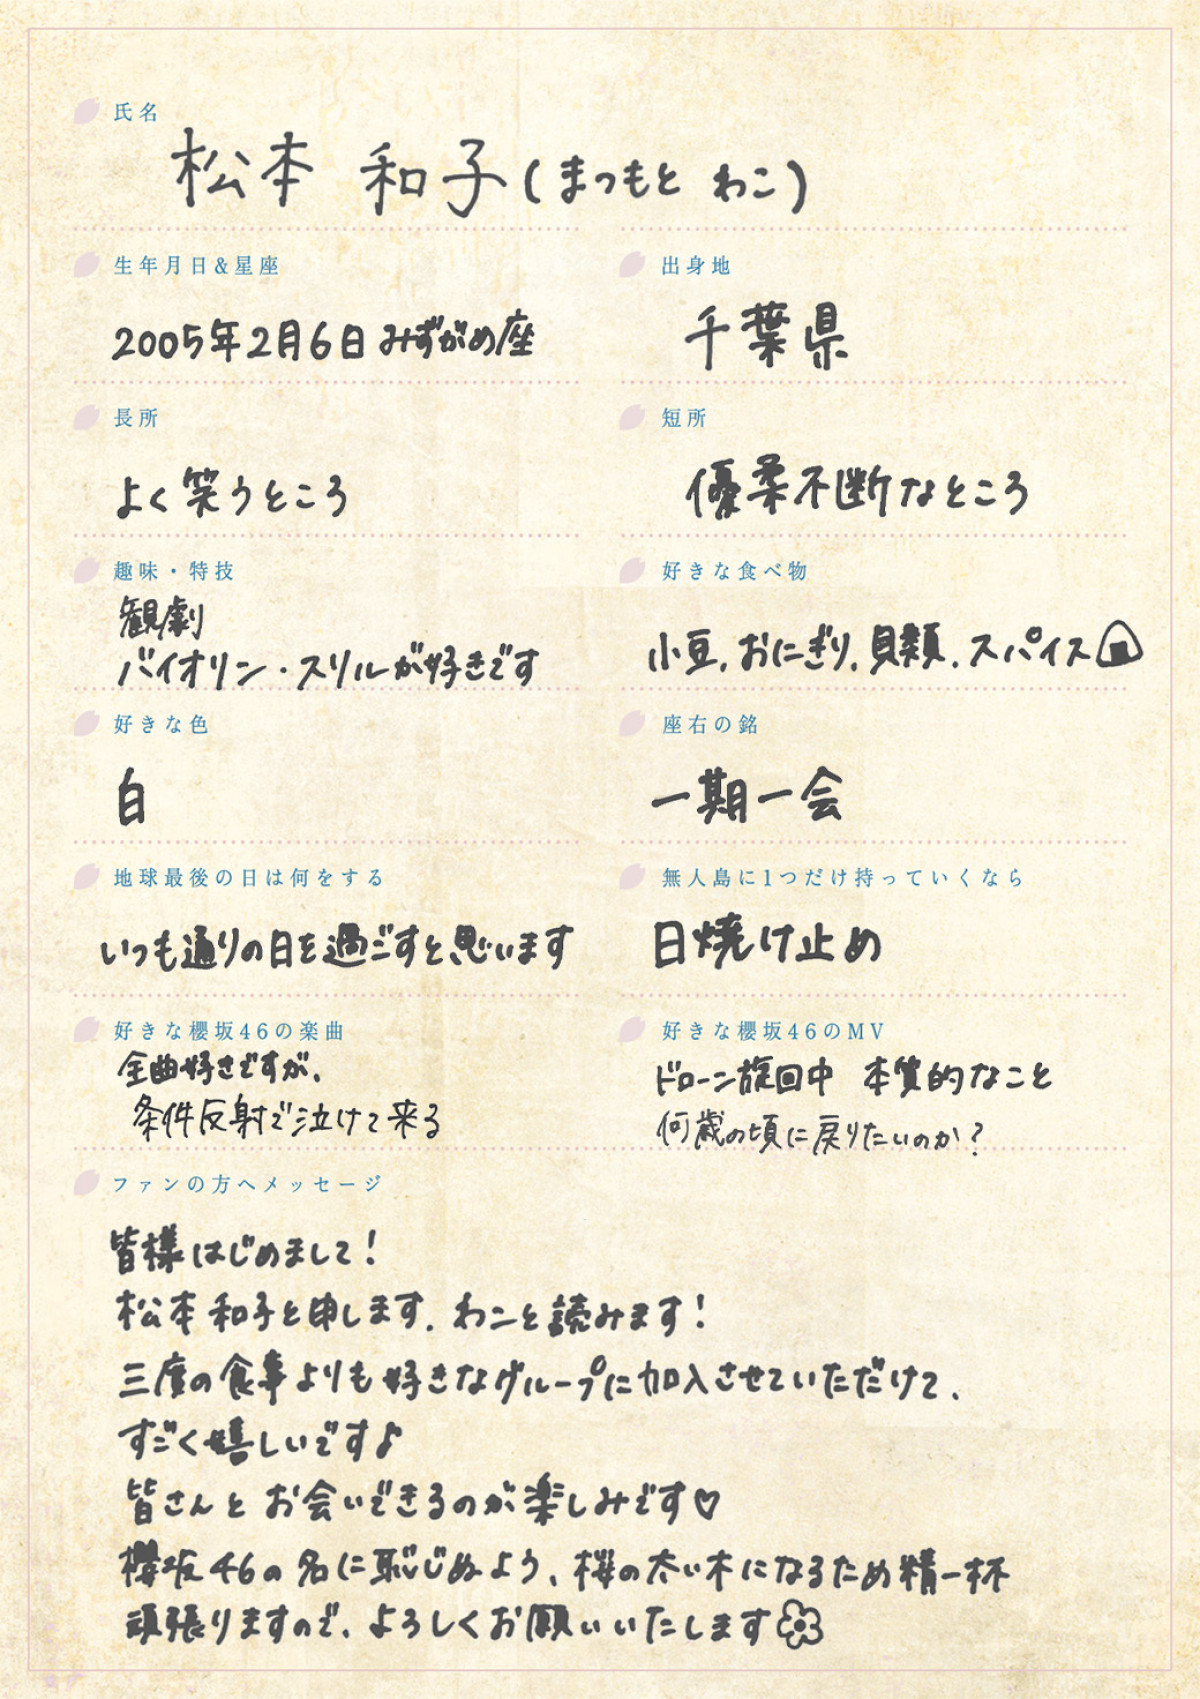 氏名
松本 和子(まつもと わこ)
生年月日&星座
2005年2月6日 みずがめ座
出身地
千葉県
長所
よく笑うところ
短所
優柔不断なところ
趣味・特技
観劇
バイオリン・スリルが好きです
好きな食べ物
小豆,おにぎり,貝類,スパイス
好きな色
白
座右の銘
一期一会
地球最後の日は何をする
いつも通りの日を過ごすと思います
無人島に1つだけ持っていくなら
日焼け止め
好きな櫻坂46の楽曲
全曲好きですが、
条件反射で泣けて来る
好きな櫻坂46のMV
ドローン旋回中 本質的なこと
何歳の頃に戻りたいのか?
ファンの方へメッセージ
皆様はじめまして!
松本和子と申します.わこと読みます!
三度の食事よりも好きなグループに加入させていただけて、
すごく嬉しいです♪
皆さんとお会いできるのが楽しみです♡
櫻坂46の名に恥じぬよう、桜の太い木になるため精一杯
頑張りますので、よろしくお願いいたします